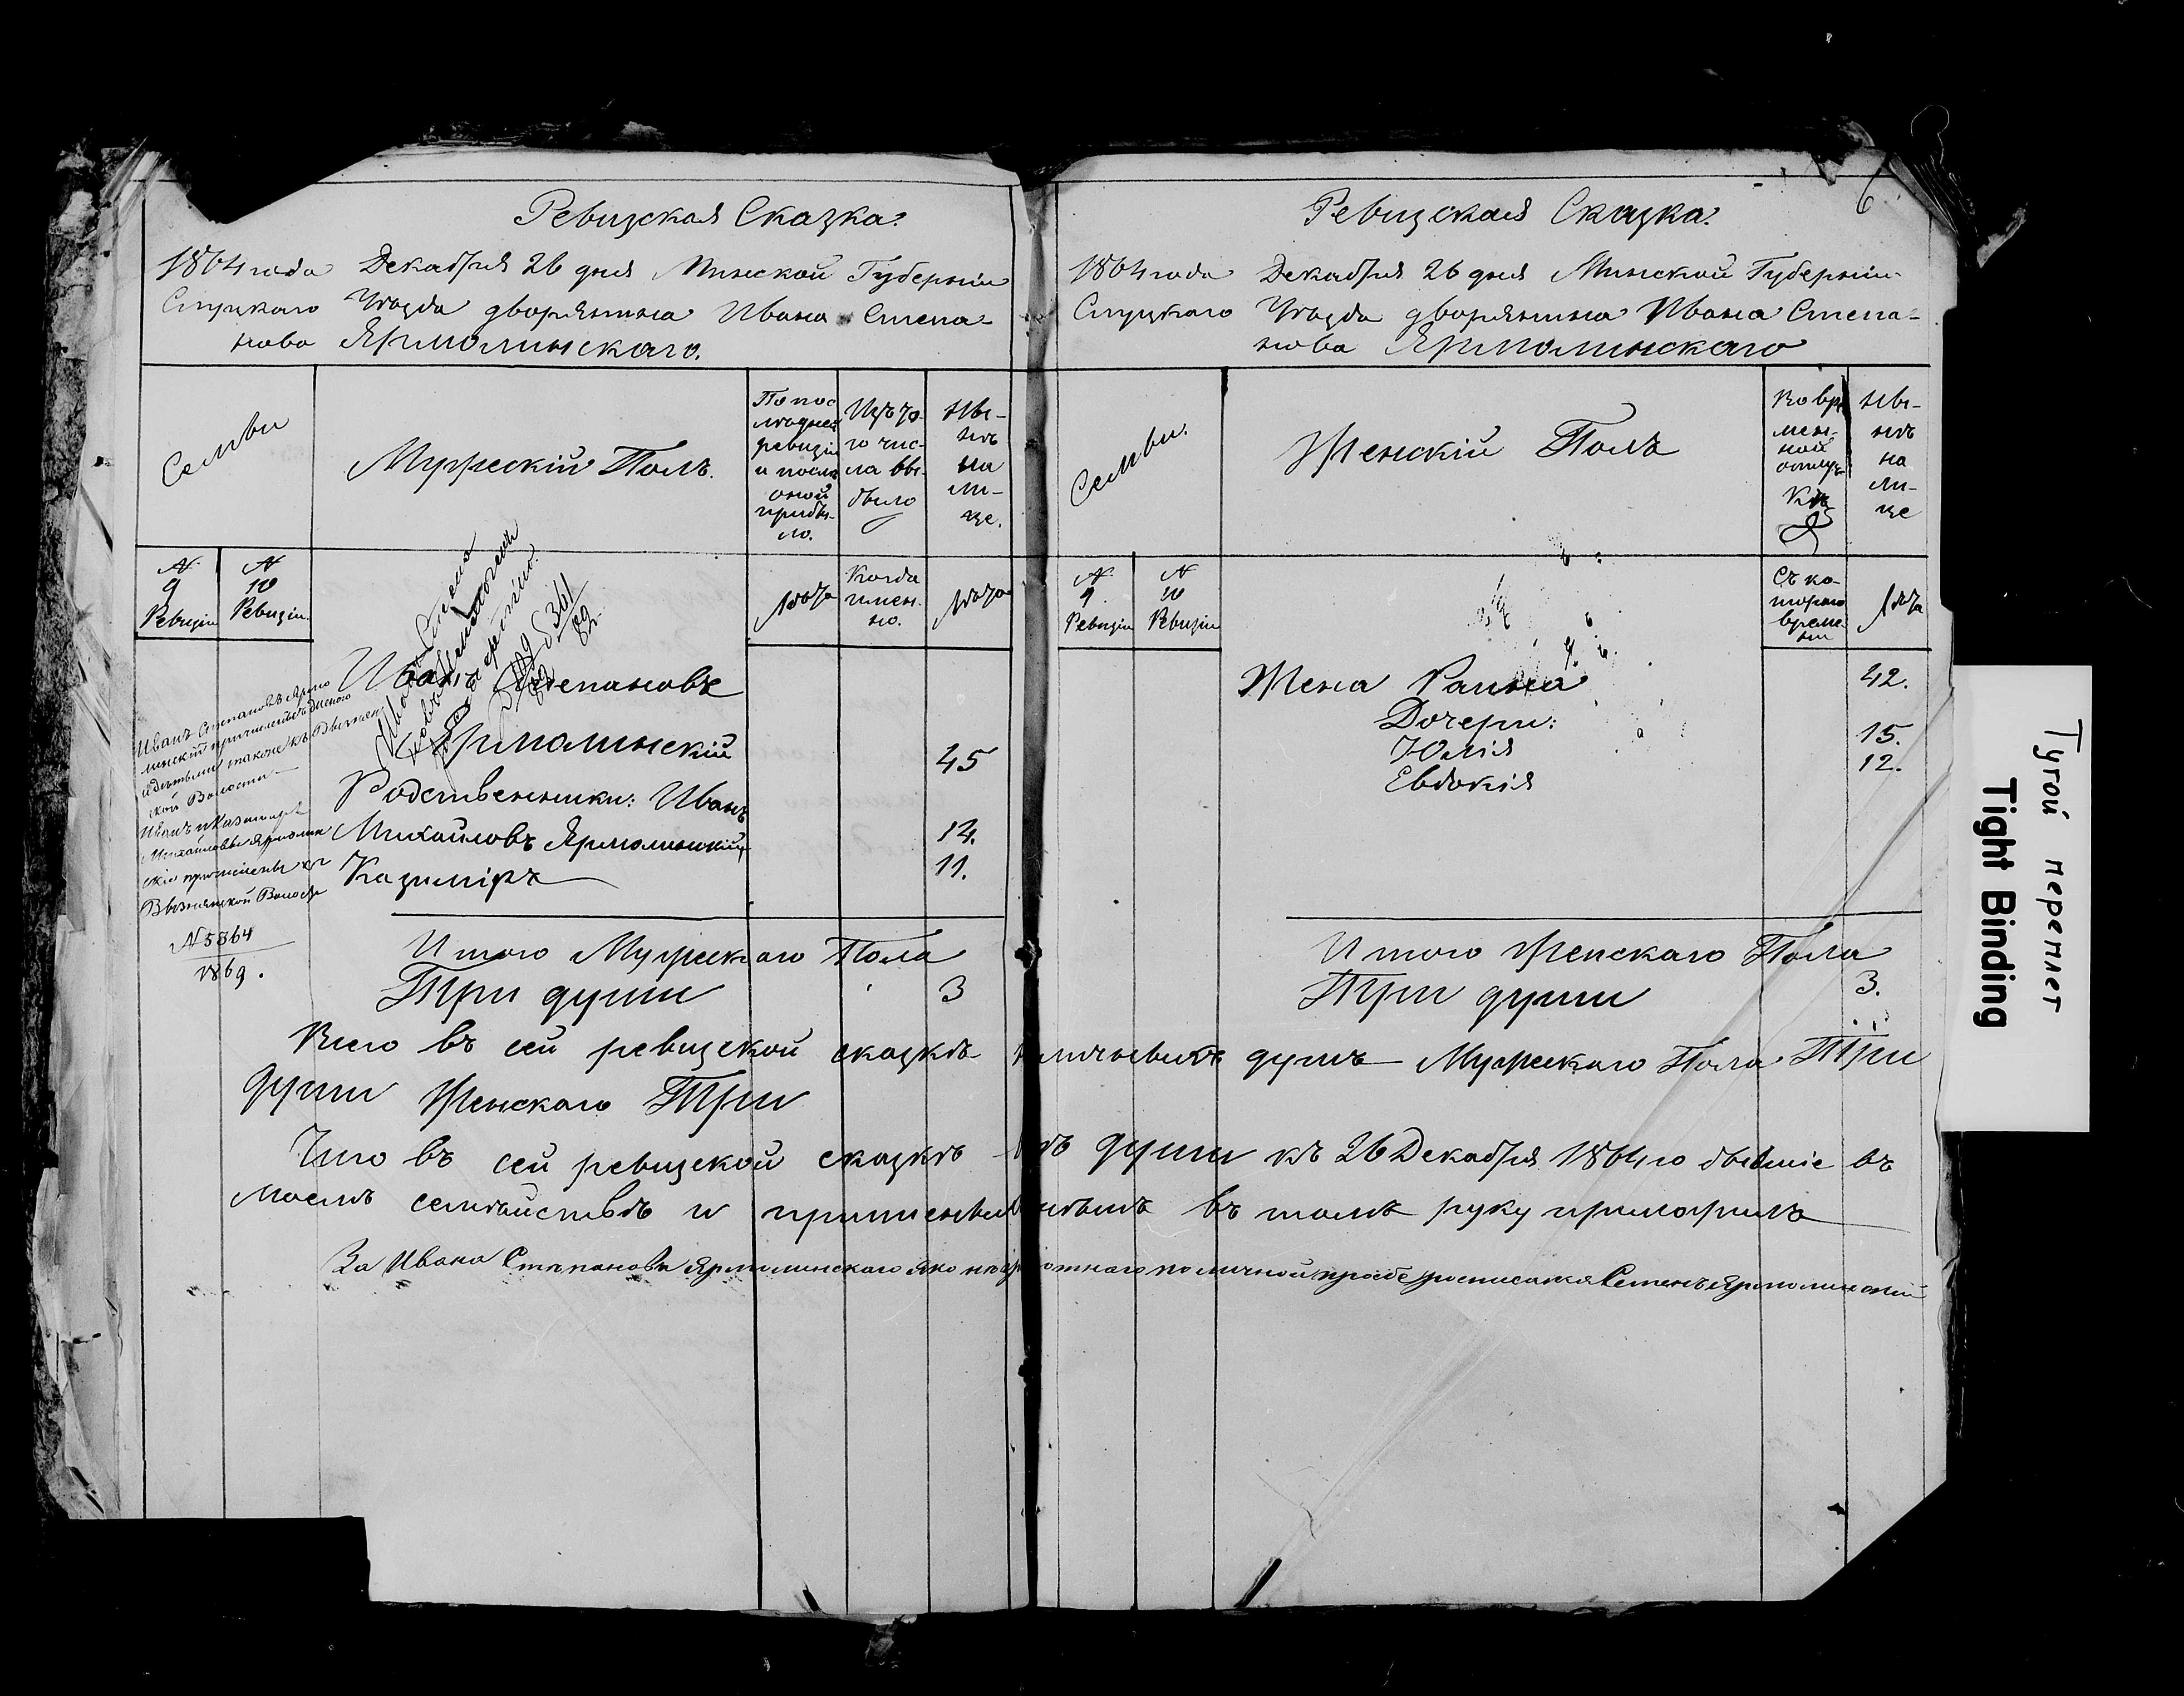 Ревизская Сказка.
1864 года Декабря 26 дня Минской Губернiи
Слуцкаго Уѣзда дворянина Ивана Степа-
нова Ярмолинскаго.
Семьи
Мужескiй Полъ.
По пос
лѣдней
ревизiи
и послѣ
оной
прибы-
ло.
Изъ то-
го чис-
ла вы-
было
Ны-
нѣ
на
ли-
це.
№
9
Ревизiи
№
10
Ревизiи.
Лѣта
Когда
имен-
но.
Лѣта
Иванъ Степановъ
Ярмолинскiй 45
Родственники: Иванъ
Михайловъ Ярмолинскiй 14.
Казимiръ 11.
Иванъ Степановъ Ярмо
линскiй причисленъ
и дѣтьми также къ Вызнян
ской Волости
Иванъ и Казимiръ
Михайловы Ярмолин
скiе причислены къ
Вызнянской Волости
№ 5364
1869.
Итого Мужескаго Пола
Три души 3
Ревизская Сказка.
6
1864 года Декабря 26 дня Минской Губернiи
Слуцкаго Уѣзда дворянина Ивана Степа-
нова Ярмолинскаго
Семьи.
Женскiй Полъ
Во вре
мен-
ной
отлуч
кѣ
Ны-
нѣ
на
ли-
це
№
9
Ревизiи
№
10
Ревизiи
Съ ко-
тораго
време-
ни
Лѣта
Жена Раина 42.
Дочери:
Юлiя 15.
Евдокiя 12.
Итого Женскаго Пола
Три души 3.
Всего въ сей ревизской сказкѣ наличныхъ душъ Мужескаго Пола Три
души Женскаго Три
Что въ сей ревизской сказкѣ всѣ души къ 26 Декабря 1864 го бывшiе въ
моемъ семѣйствѣ и въ томъ руку приложилъ
За Ивана Степанова Ярмолинскаго яко неграмотнаго по личной прозбе росписался Семенъ Ярмолинскiй
Тугой переплет
Tight Binding